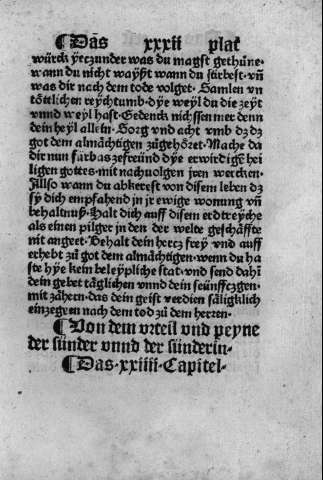 ¶ Das xxxii plat
würck yetzunder was du magst gethůne·
wann du nicht wayst wann du stirbest· vñ
was dir nach dem tode volget· Samlen vn
tötlichen reychtumb· dye weyl du die zeyt
vnnd weyl hast· Gedenck nichssen mer denn
dein heyl allein· Sorg vnd acht vmb dz dz
got dem almächtigen zůgehöret· Mache da
dir nun fürbas ze freünd dye erwirdigẽ hei
ligen gottes· mit nachuolgen jren wercken·
Allso wann du abkerest von disem leben dz
sy dich empfahend in jr ewige wonung vñ
behaltnuß· Halt dich auff disem erdtreyche
als einen pilger in den der welte geschäffte
nit angeet· Behalt dein hertz frey vnd auff
erhebt zů got dem almächtigen· wenn du ha
ste hye kein beleyplliche stat· vnd send dahĩ
dein gebet täglichen vnnd dein seünffczgen·
mit zähern· das dein geist verdien säligklich
einzegeen nach dem tod zů dem herren·
¶ Von dem vrteil vnd peyne
der sünder vnnd der sünderin·
¶ Das· xxiiii· Capitel·